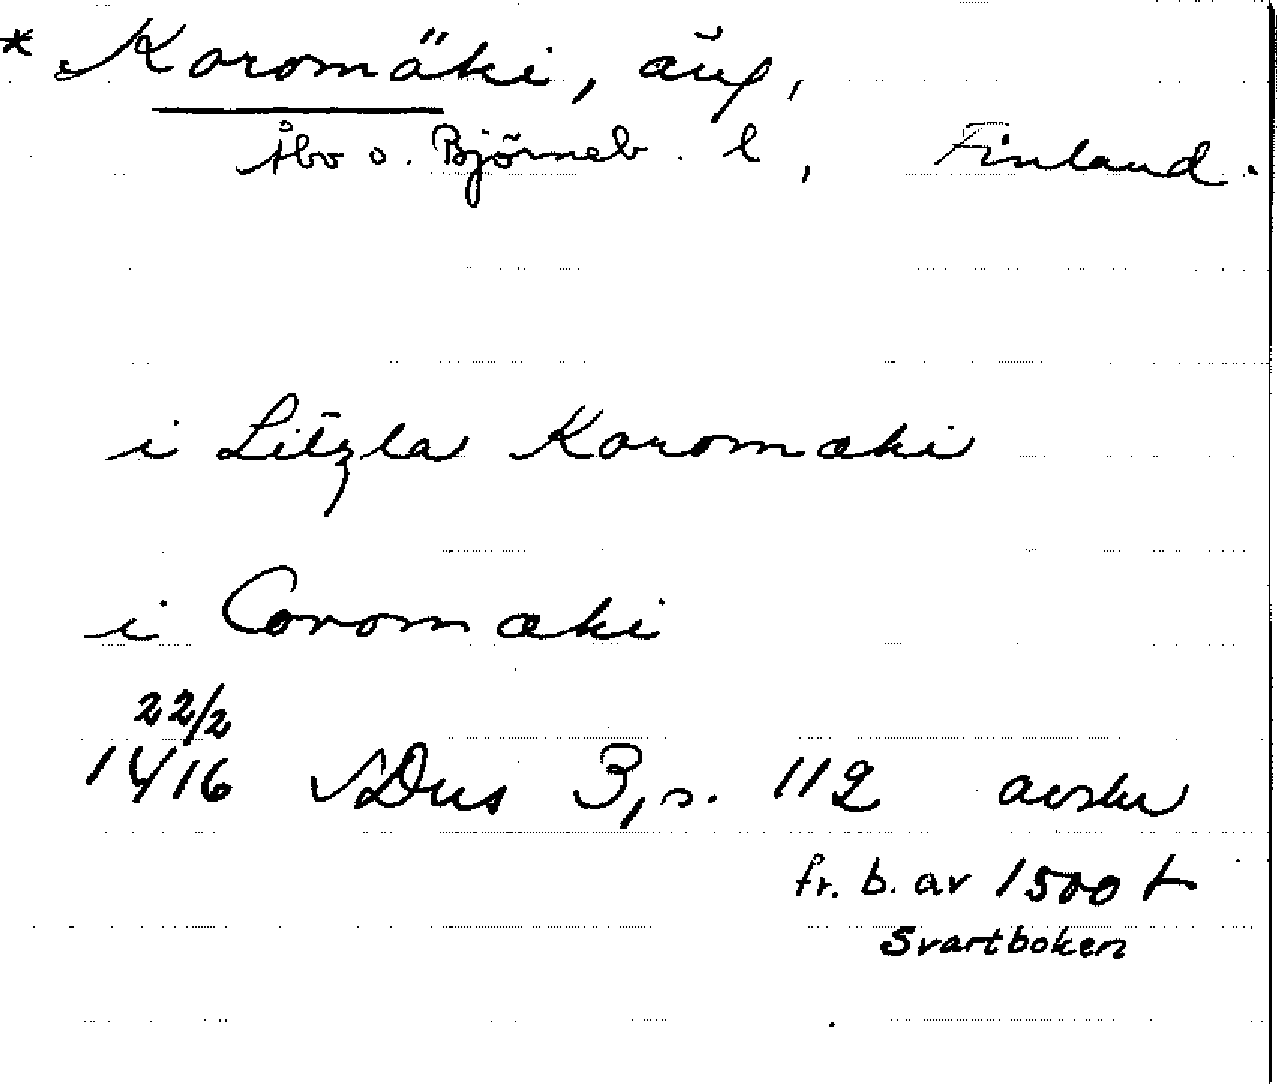 * Koromäki, äng,
Åbo o. Björneb. l, Finland.
i Litzla Koromæki
i Coromæki
22/2
1416 SDns 3, s. 112 avskr
fr. b. av 1500 t
Svartboken